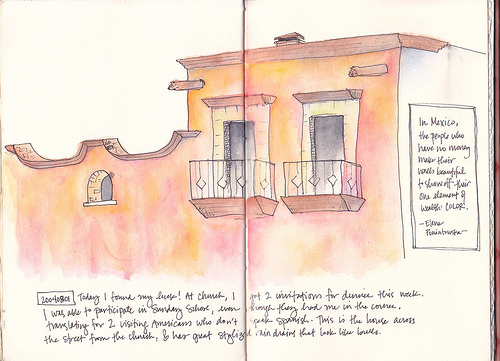 In Mexico,
the people who
have no money
make their
walls beautiful
to show off their
one element of
wealth: COLOR!
- Elena
20070801 Today I found my house! At church, I got 2 invitations for dinner this week.
I was able to participate in Sunday School, even though they had me in the corner,
translating for 2 visiting Americans who don't speak Spanish. This is the house across
the street from the church, & has great stylized rain drains that look like bowls.